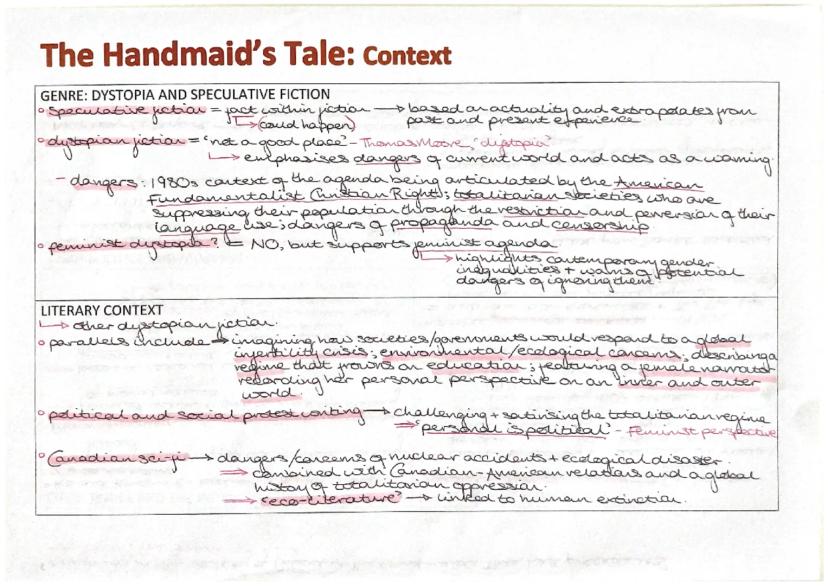 The Handmaid's Tale: Context
GENRE: DYSTOPIA AND SPECULATIVE FICTION
speculative fiction = fact within fiction → based on actuality and extrapolates from
↳ (could happen) past and present experience
dystopian fiction = 'not a good place' - Thomas Moore, 'dystopia'
↳ emphasises dangers of current world and acts as a warning.
- dangers: 1980s context of the agenda being articulated by the American
Fundamentalist (Christian Right); totalitarian societies who are
suppressing their population through the restriction and perversion of their
language use; dangers of propaganda and censorship.
feminist dystopia? = NO, but supports feminist agenda
↳ highlights contemporary gender
inequalities + warns of potential
dangers of ignoring them!
LITERARY CONTEXT
↳ other dystopian fiction.
parallels include → imagining how societies/governments would respond to a global
infertility crisis; environmental/ecological concerns; describing a
regime that frowns on education; featuring a female narrator
recording her personal perspective on an inner and outer
world.
political and social protest writing → challenging + satirising the totalitarian regime
⇒ 'personal is political' - Feminist perspective
Canadian sci-fi → dangers/concerns of nuclear accidents + ecological disaster.
⇒ combined with Canadian-American relations and a global
history of totalitarian oppression.
⇒ 'eco-literature' → linked to human extinction.